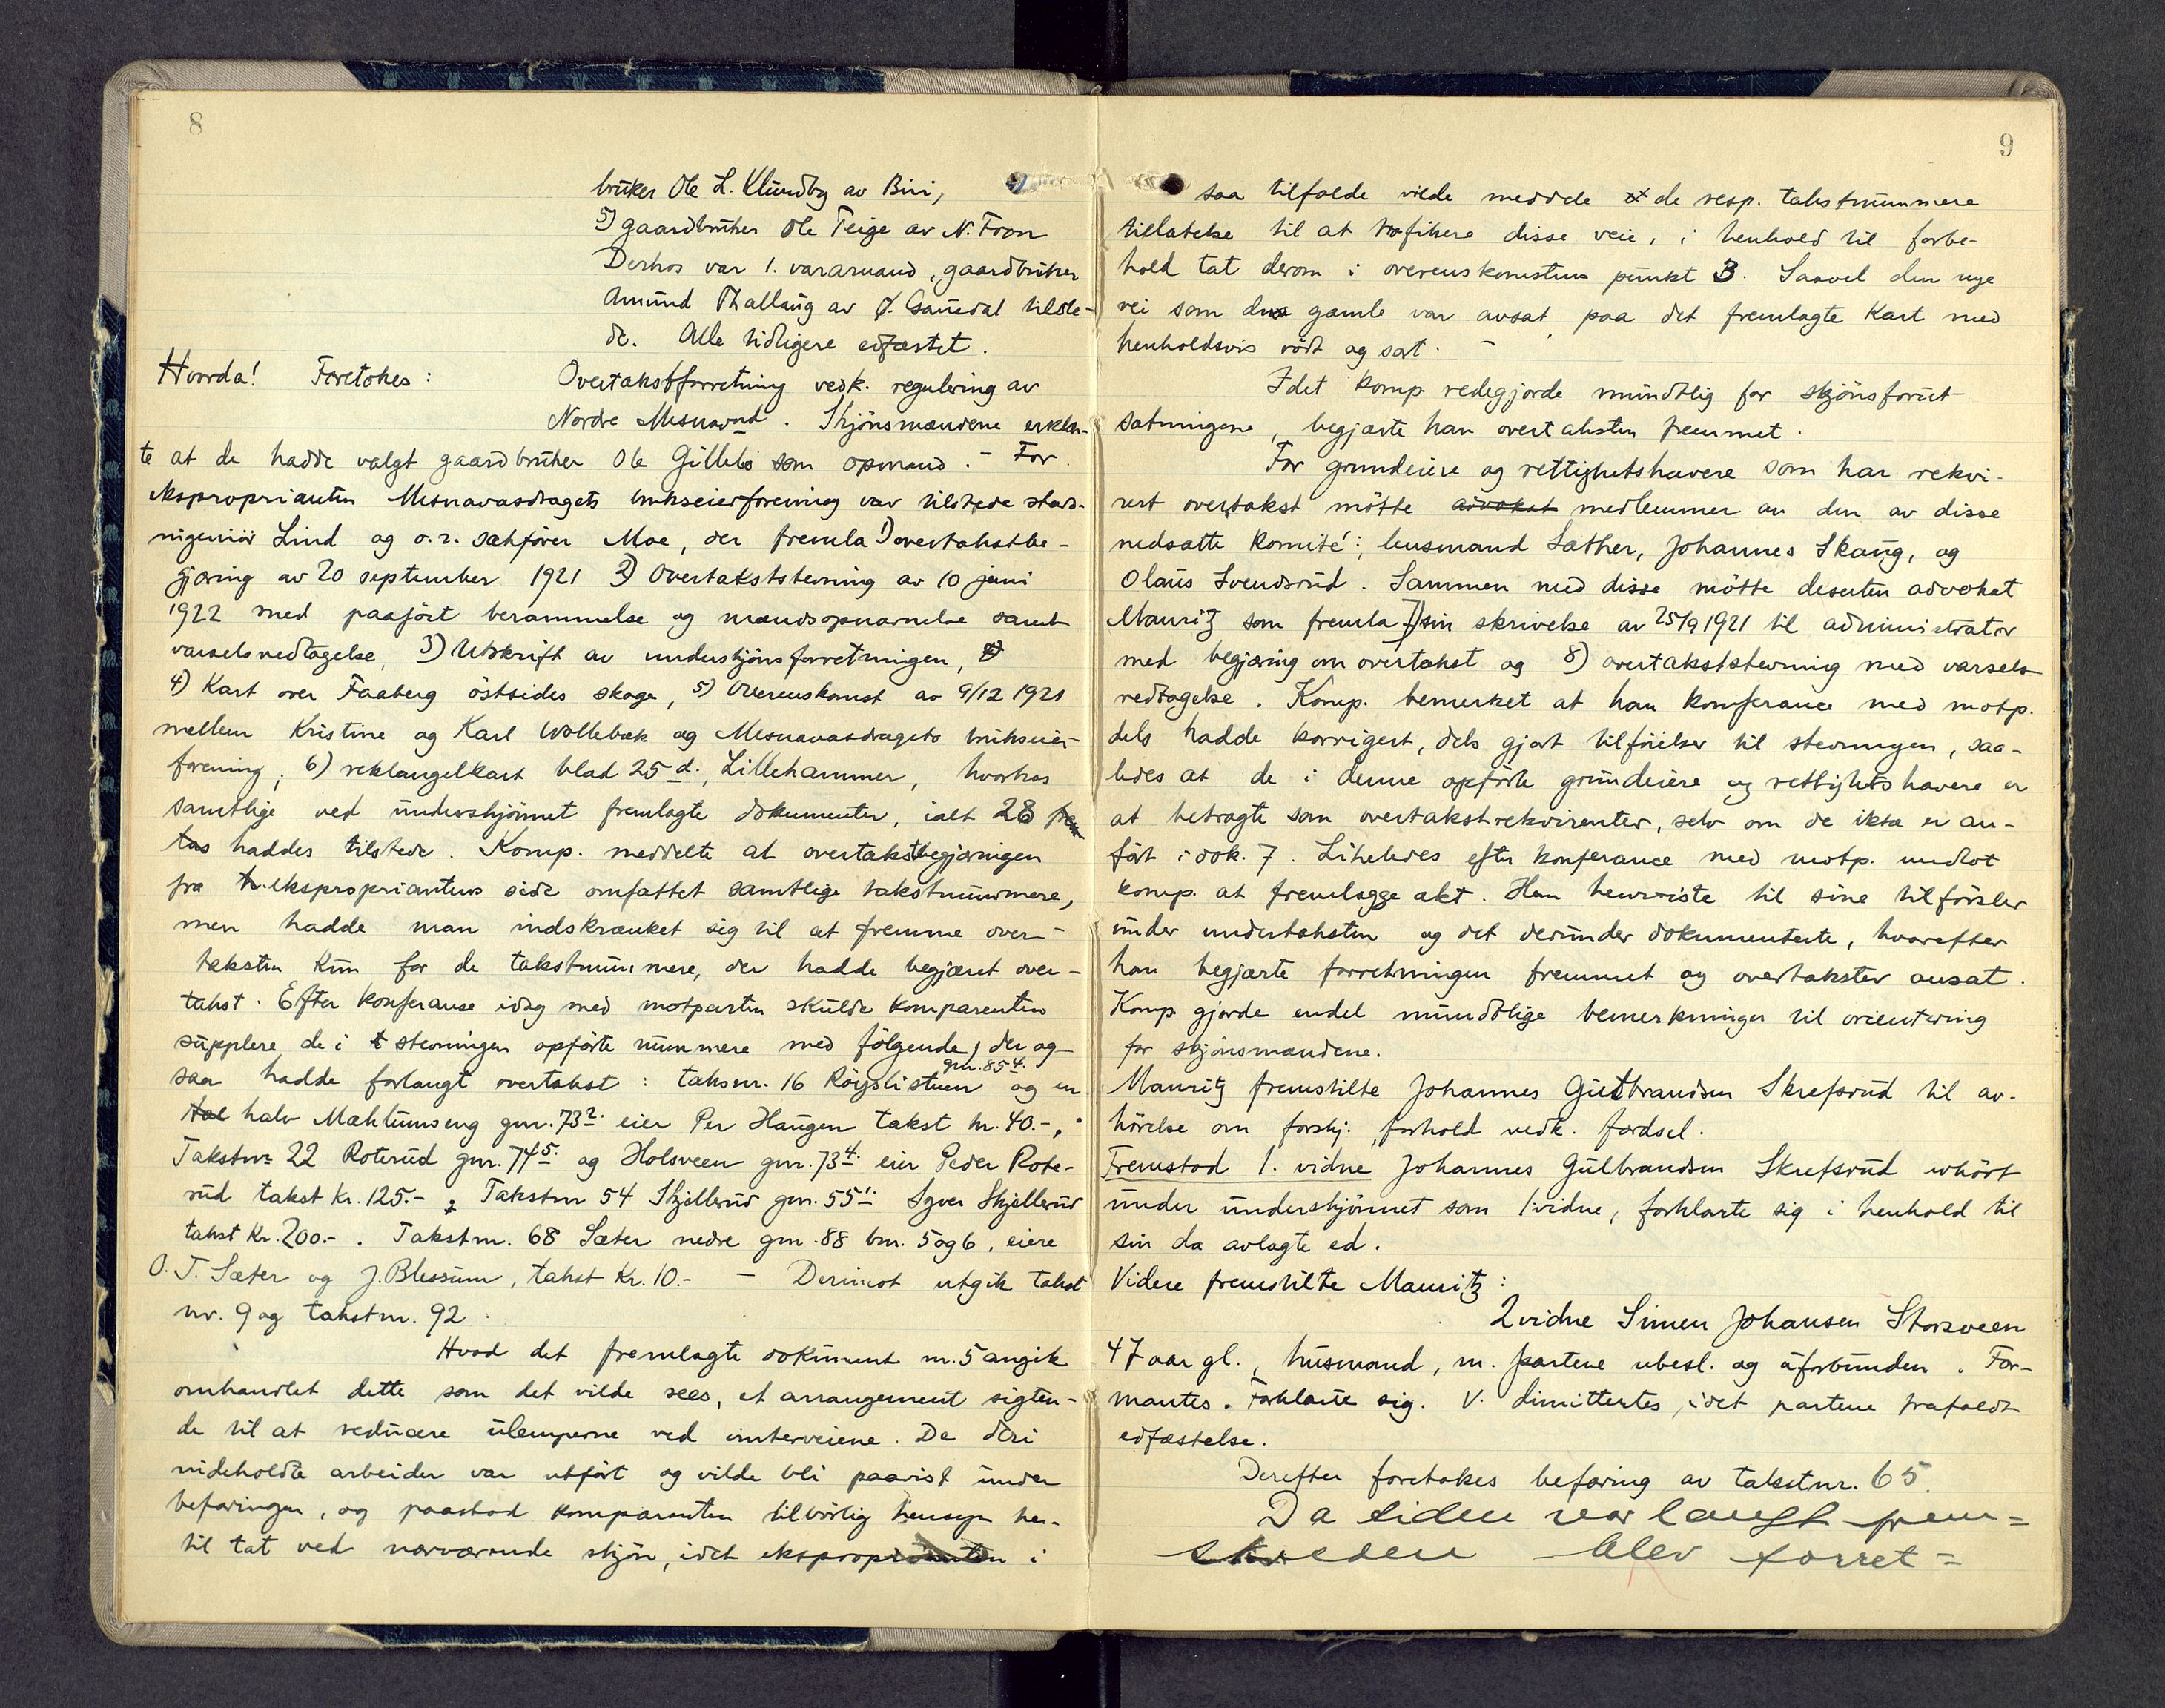 8
bruker Ole L. Klundby av Biri,
5) gaardbruker Ole Teige av N. Fron
Derhos var 1. varamand, gaardbruker
Amund Thallaug av Ø. Gausdal tilste-
de. Alle tidligere edfæstet.
Hvorda! Foretokes: Overtakstforretning vedk. regulering av
Nordre Mesnavand. Skjönsmændene erklær-
te at de hadde valgt gaardbruker Ole Gillebo som opmand. - For
ekspropriantin Mesnavasdragets brukseierforening var tilstede stads-
ingeniör Lind og o.r. sakförer Moe, der fremla 1) overtakstbe-
gjæring av 20 september 1921 2) Overtakststevning av 10 juni
1922 med paafört berammelse og mændsopnævnelse samt
varselsvedtagelse, 3) Utskrift av underskjönsforretningen,
4) Kart over Faaberg östsides skoge, 5) Overenskomst av 9/12 1921
mellem Kristine og Karl Wollebæk og Mesnavasdragets brukseier-
forening, 6) rektangelkart blad 25 d. Lillehammer, hvorhos
samtlige ved underskjönnet fremlagte dokumenter, ialt 28
haddes tilstede. Komp. meddelte at overtakstbegjæringen
fra ekspropriantens side omfattet samtlige takstnummere,
men hadde man indskrænket sig til at fremme over-
taksten kun for de takstnummere, der hadde begjæret over-
takst. Efter konferanse idag med motparten skulde komparenten
supplere de i t stevningen opförte nummere med fölgende, der og-
saa hadde forlangt overtakst: takstnr. 16 Röyslistuen gnr. 85 4. og en
Hal halv Mæhlumseng gnr. 73 2. eier Per Haugen takst kr. 40.-,
Takstnr 22 Roterud gnr. 74 5. og Holsveen gnr. 73 4. eier Peder Rote-
rud takst kr. 125.- , Takstnr 54 Skjellerud gnr. 55 1. Syver Skjellerud
takst kr. 200.- . Takstnr. 68 Sæter nedre gnr. 88 bnr. 5 og 6, eiere
O. T. Sæter og J. Blessum, takst kr. 10.- - Derimot utgik takst
nr. 9 og takstnr. 92.
Hvad det fremlagte dokument nr. 5 angik
omhandlet dette som det vilde sees, et arrangement sigten-
de til at reducere ulemperne ved vinterveiene. De deri
indeholdte arbeider var utfört og vilde bli paavist under
befaringen, og paastod komparenten tilbörlig hensyn her-
til tat ved nærværende skjön, idet ekspropriantin i
9
saa tilfælde vilde meddele de resp. takstnummere
tillatelse til at trafikere disse veie, i henhold til forbe-
hold tat derom i overenskomstens punkt 3. Saavel den nye
vei som den gamle var avsat paa det fremlagte kart med
henholdsvis rödt og sort. -
Idet komp. redegjorde mundtlig for skjönsforut-
sætningene, begjærte han overtaksten fremmet.
For grundeiere og rettighetshavere som har rekvi-
rert overtakst mötte advokat medlemmer av den av disse
nedsatte komité: lensmand Sæther, Johannes Skaug, og
Olaus Svendsrud. Sammen med disse mötte desuten advokat
Mauritz som fremla 7) sin skrivelse av 25/9 1921 til administrator
med begjæring om overtakst og 8) overtakststevning med varsels-
vedtagelse. Komp. bemerket at han konferance med motp.
dels hadde korrigert, dels gjort tilföielser til stevningen, saa-
ledes at de i denne opförte grundeiere og rettighetshavere er
at betragte som overtakstrekvirenter, selv om de ikke er an-
fört i dok. 7. Likeledes efter konferance med motp. undlot
komp. at fremlægge akt. Han henviste til sine tilförsler
under undertaksten og det derunder dokumenterte, hvorefter
han begjærte forretningen fremmet og overtakster ansat.
Komp gjorde endel mundtlige bemerkninger til orientering
for skjönsmændene.
Mauritz fremstilte Johannes Gulbrandsen Skrefsrud til av-
hörelse om forskj. forhold vedk. færdsel.
Fremstod 1. vidne Johannes Gulbrandsen Skrefsrud avhört
under underskjönnet som 1 vidne, forklarte sig i henhold til
sin da avlagte ed.
Videre fremstilte Mauritz:
2 vidne Simen Johansen Storsveen
47 aar gl., husmand, m. partene ubesl. og uforbunden. For-
mantes. Forklarte sig. V. dimittertes, idet partene frafaldt
edfæstelse.
Derefter foretokes befaring av takstnr. 65.
Da tiden var langt frem-
skreden blev forret=